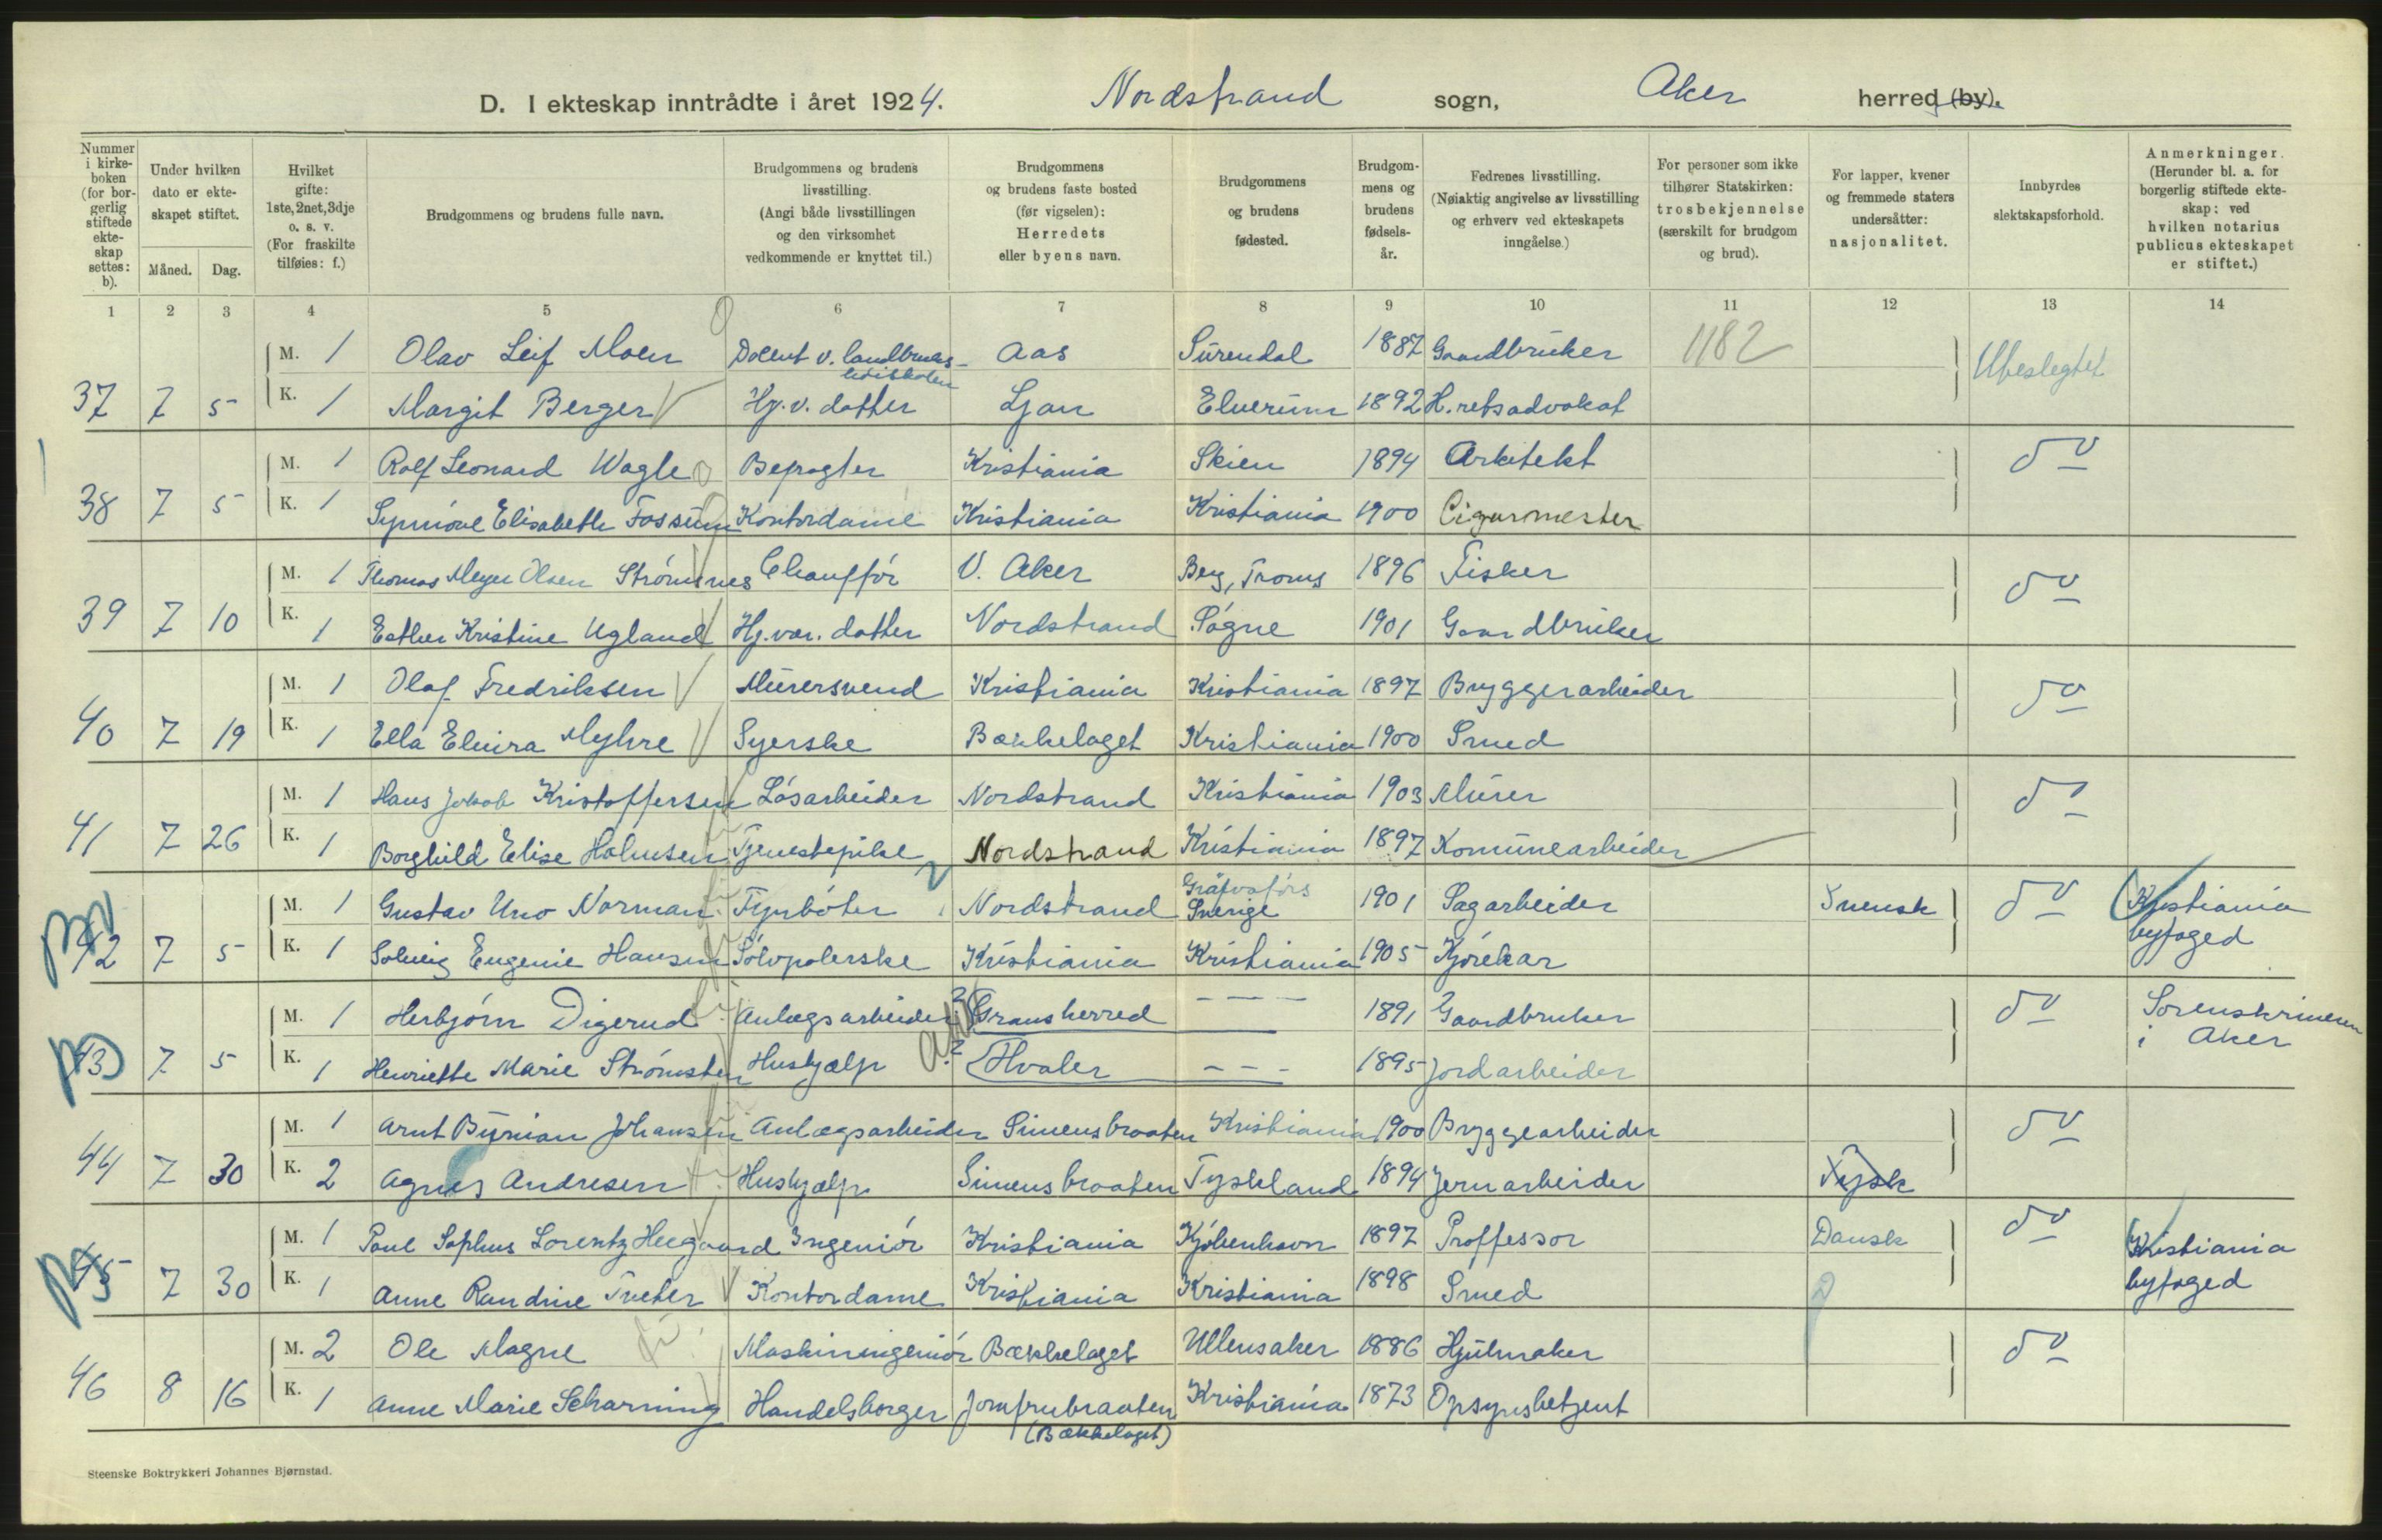 D. I ekteskap inntrådte i året 1924. Nordstrand sogn, Aker herred (by).
Nummer i kirke-boken (for bor-gerlig stiftede ekte-skap settes: b).
Under hvilken dato er ekte-skapet stiftet.
Måned. Dag.
Hvilket gifte: 1ste, 2net, 3dje o. s. v. (For fraskilte tilføies: f.)
Brudgommens og brudens fulle navn.
Brudgommens og brudens livsstilling. (Angi både livsstillingen og den virksomhet vedkommende er knyttet til.)
Brudgommens og brudens faste bosted (før vigselen): Herredets eller byens navn.
Brudgommens og brudens fødested.
Brudgom-mens og brudens fødsels-år.
Fedrenes livsstilling. (Nøiaktig angivelse av livsstilling og erhverv ved ekteskapets inngåelse.)
For personer som ikke tilhører Statskirken: trosbekjennelse (særskilt for brudgom og brud).
For lapper, kvener og fremmede staters undersåtter: nasjonalitet.
Innbyrdes slektskapsforhold.
Anmerkninger. (Herunder bl. a. for borgerlig stiftede ekte-skap: ved hvilken notarius publicus ekteskapet er stiftet.)
1 2 3 4 5 6 7 8 9 10 11 12 13 14
M. 1 Olav Leif Moen Docent v. landbruks- Aas Surendal 1887 Gaardbruker 1182 Ubeslegtet
37 7 5 K. 1 Margit Berger Hj. v. datter Ljan Elverum 1892 H. retsadvokat
M. 1 Rolf Leonard Wagle Befragter Kristiania Skien 1894 Arkitekt do
38 7 5 K. 1 Synnöve Elisabeth Fossum Kontordame Kristiania Kristiania 1900 Cigarmester
M. 1 Thomas Meyer Olsen Strömsnes Chaufför V. Aker Berg, Troms 1896 Fisker do
39 7 10 K. 1 Esther Kristine Ugland Hj. vær. datter Nordstrand Sögne 1901 Gaardbruker
M. 1 Olaf Fredriksen Murersvend Kristiania Kristiania 1897 Bryggerarbeider do
40 7 19 K. 1 Ella Elvira Myhre Syerske Bækkelaget Kristiania 1900 Smed
M. 1 Hans Jakob Kristoffersen Lösarbeider Nordstrand Kristiania 1903 Murer do
41 7 26 K. 1 Borghild Elise Holmsen Tjenestepike Nordstrand Kristiania 1897 Komunearbeider
M. 1 Gustav Uno Norman Fyrböter Nordstrand Gräfvafors Sverige 1901 Sagarbeider Svensk do Kristiania
42 7 5 K. 1 Solveig Eugenie Hansen Sölvpolerske Kristiania Kristiania 1905 Kjörekar byfoged
M. 1 Herbjörn Digerud Anlægsarbeider ? Gransherred — — — 1891 Gaardbruker do Sorenskriveren
43 7 5 K. 1 Henriette Marie Strömsten Hushjælp ? Hvaler — — — 1895 Jordarbeider i Aker
M. 1 Arnt Johansen Anlægsarbeider Simensbraaten Kristiania 1900 Bryggearbeider do
44 7 30 K. 2 Agnes Andresen Hushjælp Simensbraaten Tyskland 1894 Jernarbeider Tysk
M. 1 Poul Sophus Lorentz Heegaard Ingeniör Kristiania Kjöbenhavn 1897 Proffessor Dansk do Kristiania
45 7 30 K. 1 Anne Randine Tveter Kontordame Kristiania Kristiania 1898 Smed byfoged
M. 2 Ole Magne Maskiningeniör Bækkelaget Ullensaker 1886 Hjulmaker do
46 8 16 K. 1 Anne Marie Scharning Handelsborger Jomfrubraaten Kristiania 1873 Opsynsbetjent
(Bækkelaget)
Steenske Boktrykkeri Johannes Bjørnstad.